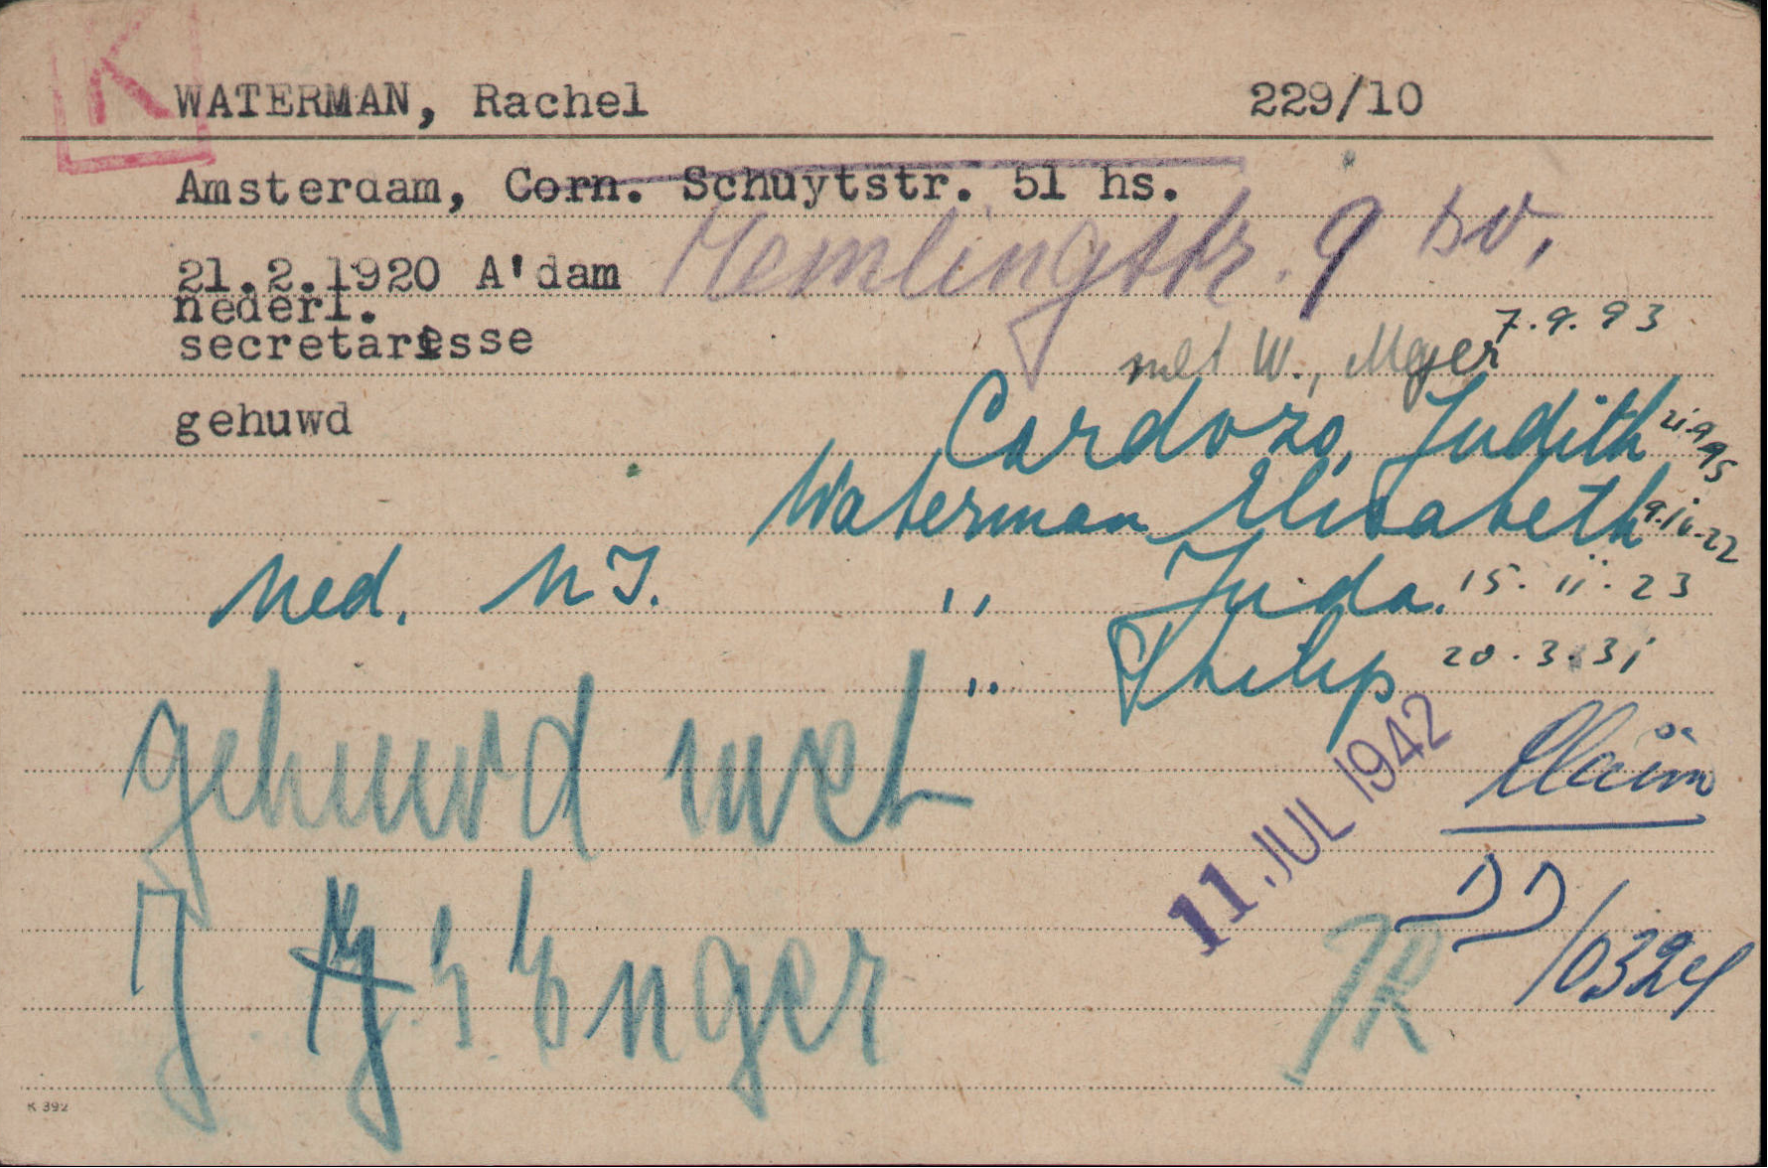 K
WATERMAN, Rachel 229/10
Amsterdam, Corn. Schuytstr. 51 hs.
Memlingstr. 9 bv.
21.2.1920 A'dam
nederl.
secretaresse
met W., Meyer 7.9.93
gehuwd
Cardozo, Judith 21.9.95
Waterman Elisabeth 22
ned. N I. ,, Juda. 15.11.23
,, Philip 20.3.31
gehuwd met
11 JUL 1942
J. S. Enger
/0324
JR
K 392